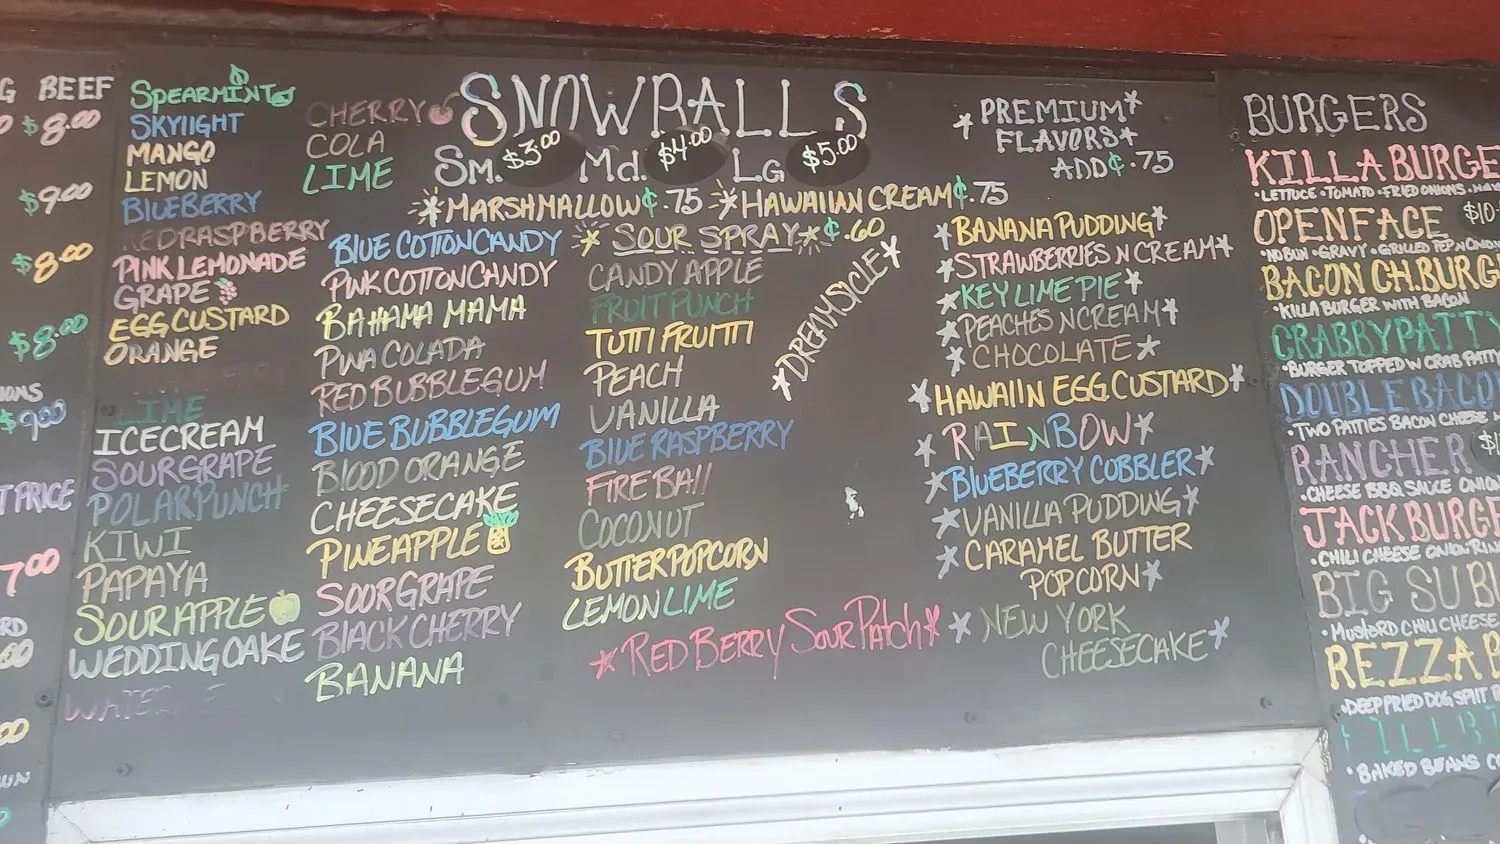 G BEEF
$8.00
$9.00
$8.00
$8.00
$9.00
T PRICE
7.00
SPEARMINT
SKYlIGHT
MANGO
LEMON
BLUEBERRY
RED RASPBERRY
PINK LEMONADE
GRAPE
EGG CUSTARD
ORANGE
LIME
ICECREAM
SOUR GRAPE
POLAR PUNCH
KIWI
PAPAYA
SOUR APPLE
WEDDING CAKE
CHERRY
COLA
LIME
SNOWBALLS
SM. $3.00 Md. $4.00 LG $5.00
MARSHMALLOW ¢.75 HAWAIIAN CREAM ¢.75
SOUR SPRAY ¢.60
BLUE COTTON CANDY
PINK COTTON CANDY
BAHAMA MAMA
PINA COLADA
RED BUBBLEGUM
BLUE BUBBLEGUM
BLOOD ORANGE
CHEESECAKE
PINEAPPLE
SOOR GRAPE
BLACK CHERRY
BANANA
CANDY APPLE
FRUIT PUNCH
TUTTI FRUITTI
PEACH
VANILLA
BLUE RASPBERRY
FIRE BAll
COCONUT
BUTTER POPCORN
LEMON LIME
RED BERRY SOUR PATCH
DREAMSICLE
PREMIUM
FLAVORS
ADD ¢.75
BANANA PUDDING
STRAWBERRIES N CREAM
KEY LIME PIE
PEACHES N CREAM
CHOCOLATE
HAWAIIN EGG CUSTARD
RAINBOW
BLUEBERRY COBBLER
VANILLA PUDDING
CARAMEL BUTTER
POPCORN
NEW YORK
CHEESECAKE
BURGERS
KILLA BURGE
•LETTUCE •TOMATO •FRIED ONIONS •MAY
OPENFACE $10
•NO BUN •GRAVY •GRILLED PEP N ONION
BACON CH.BURG
•KILLA BURGER WITH BACON
CRABBY PATTY
•BURGER TOPPED W CRAB PATTY
DOUBLE BACO
•TWO PATTIES BACON CHEESE
RANCHER
•CHEESE BBQ SAUCE ONION
JACK BURGE
•CHILI CHEESE ONION RIN
BIG SU BU
•MUSTARD CHILI CHEESE
REZZA B
•DEEP FRIED DOG SPLIT
•BAKED BEANS CO